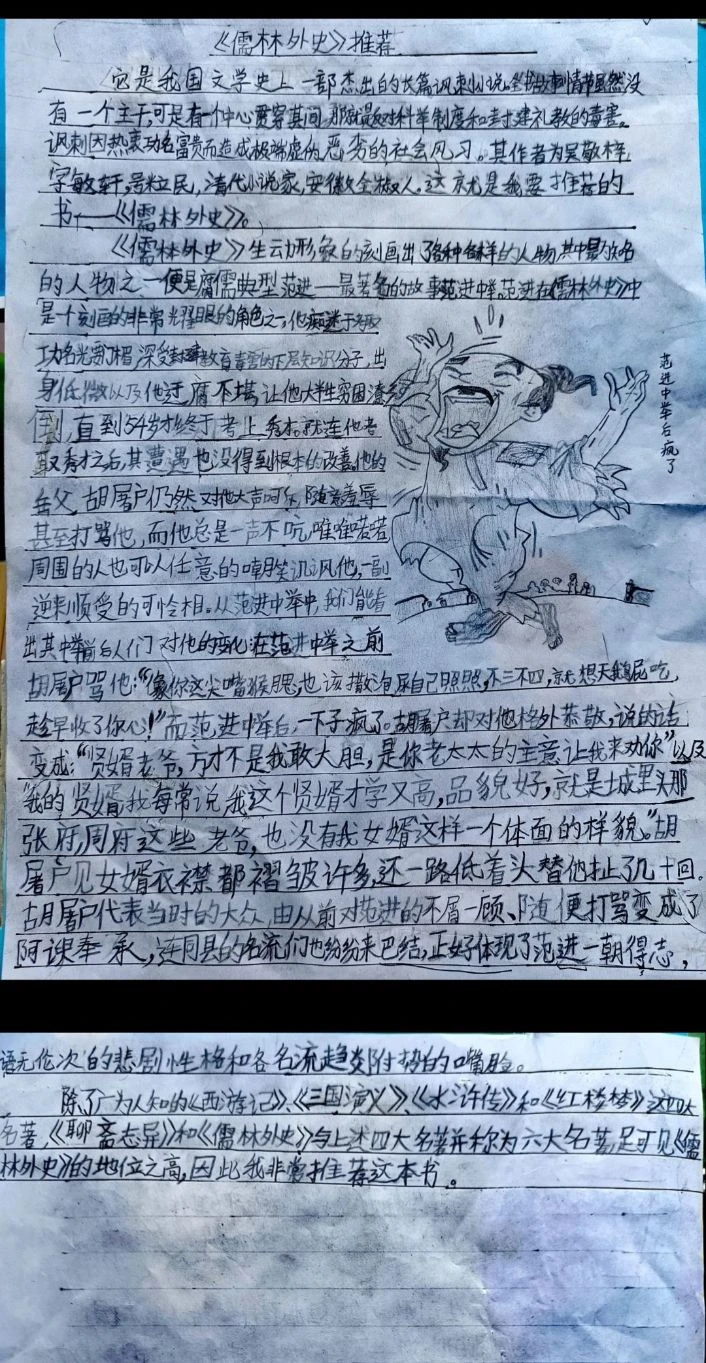 《儒林外史》推荐
它是我国文学史上一部杰出的长篇讽刺小说。全书故事情节虽然没
有一个主干,可是有一个中心贯穿其间,那就是反对科举制度和封建礼教的毒害。
讽刺因热衷功名富贵而造成极端虚伪、恶劣的社会风习。其作者为吴敬梓
字敏轩,号粒民,清代小说家,安徽全椒人。这就是我要推荐的
书——《儒林外史》。
《儒林外史》生动形象的刻画出了各种各样的人物,其中最知名
的人物之一便是腐儒典型范进——最著名的故事范进中举,范进在《儒林外史》中
是一个刻画的非常光耀眼的角色之一,他痴迷于
功名光宗耀祖,深受封建教育毒害的下层知识分子,出
身低微以及他迂腐不堪让他大半生穷困潦
倒,直到54岁才终于考上秀才。就连他考
取秀才之后,其遭遇也没得到根本的改善,他的
岳父胡屠户仍然对他大声呵斥,随意羞辱
甚至打骂他,而他总是一声不吭,唯唯喏喏
周围的人也可以任意的嘲笑讥讽他,一副
逆来顺受的可怜相。从范进中举中,我们能看
出其中举前后人们对他的变化:在范进中举之前
胡屠户骂他:“像你这尖嘴猴腮,也该撒泡尿自己照照,不三不四,就想天鹅屁吃,
趁早收了你心!”而范进中举后,一下子疯了。胡屠户却对他格外恭敬,说的话
变成:“贤婿老爷,方才不是我敢大胆,是你老太太的主意让我来劝你”以及
“我的贤婿我每常说,我这个贤婿才学又高,品貌好,就是城里头那
张府,周府这些老爷,也没有我女婿这样一个体面的样貌。”胡
屠户见女婿衣襟都褶皱许多,还一路低着头替他扯了几十回。
胡屠户代表当时的大众,由从前对范进的不屑一顾、随便打骂变成了
阿谀奉承,连同县的名流们也纷纷来巴结,正好体现了范进一朝得志,
语无伦次的悲剧性格和各名流趋炎附势的嘴脸。
除了广为人知的《西游记》、《三国演义》、《水浒传》和《红楼梦》这四大
名著,《聊斋志异》和《儒林外史》与上述四大名著并称为六大名著,足可见《儒
林外史》的地位之高,因此我非常推荐这本书。
范进中举后疯了